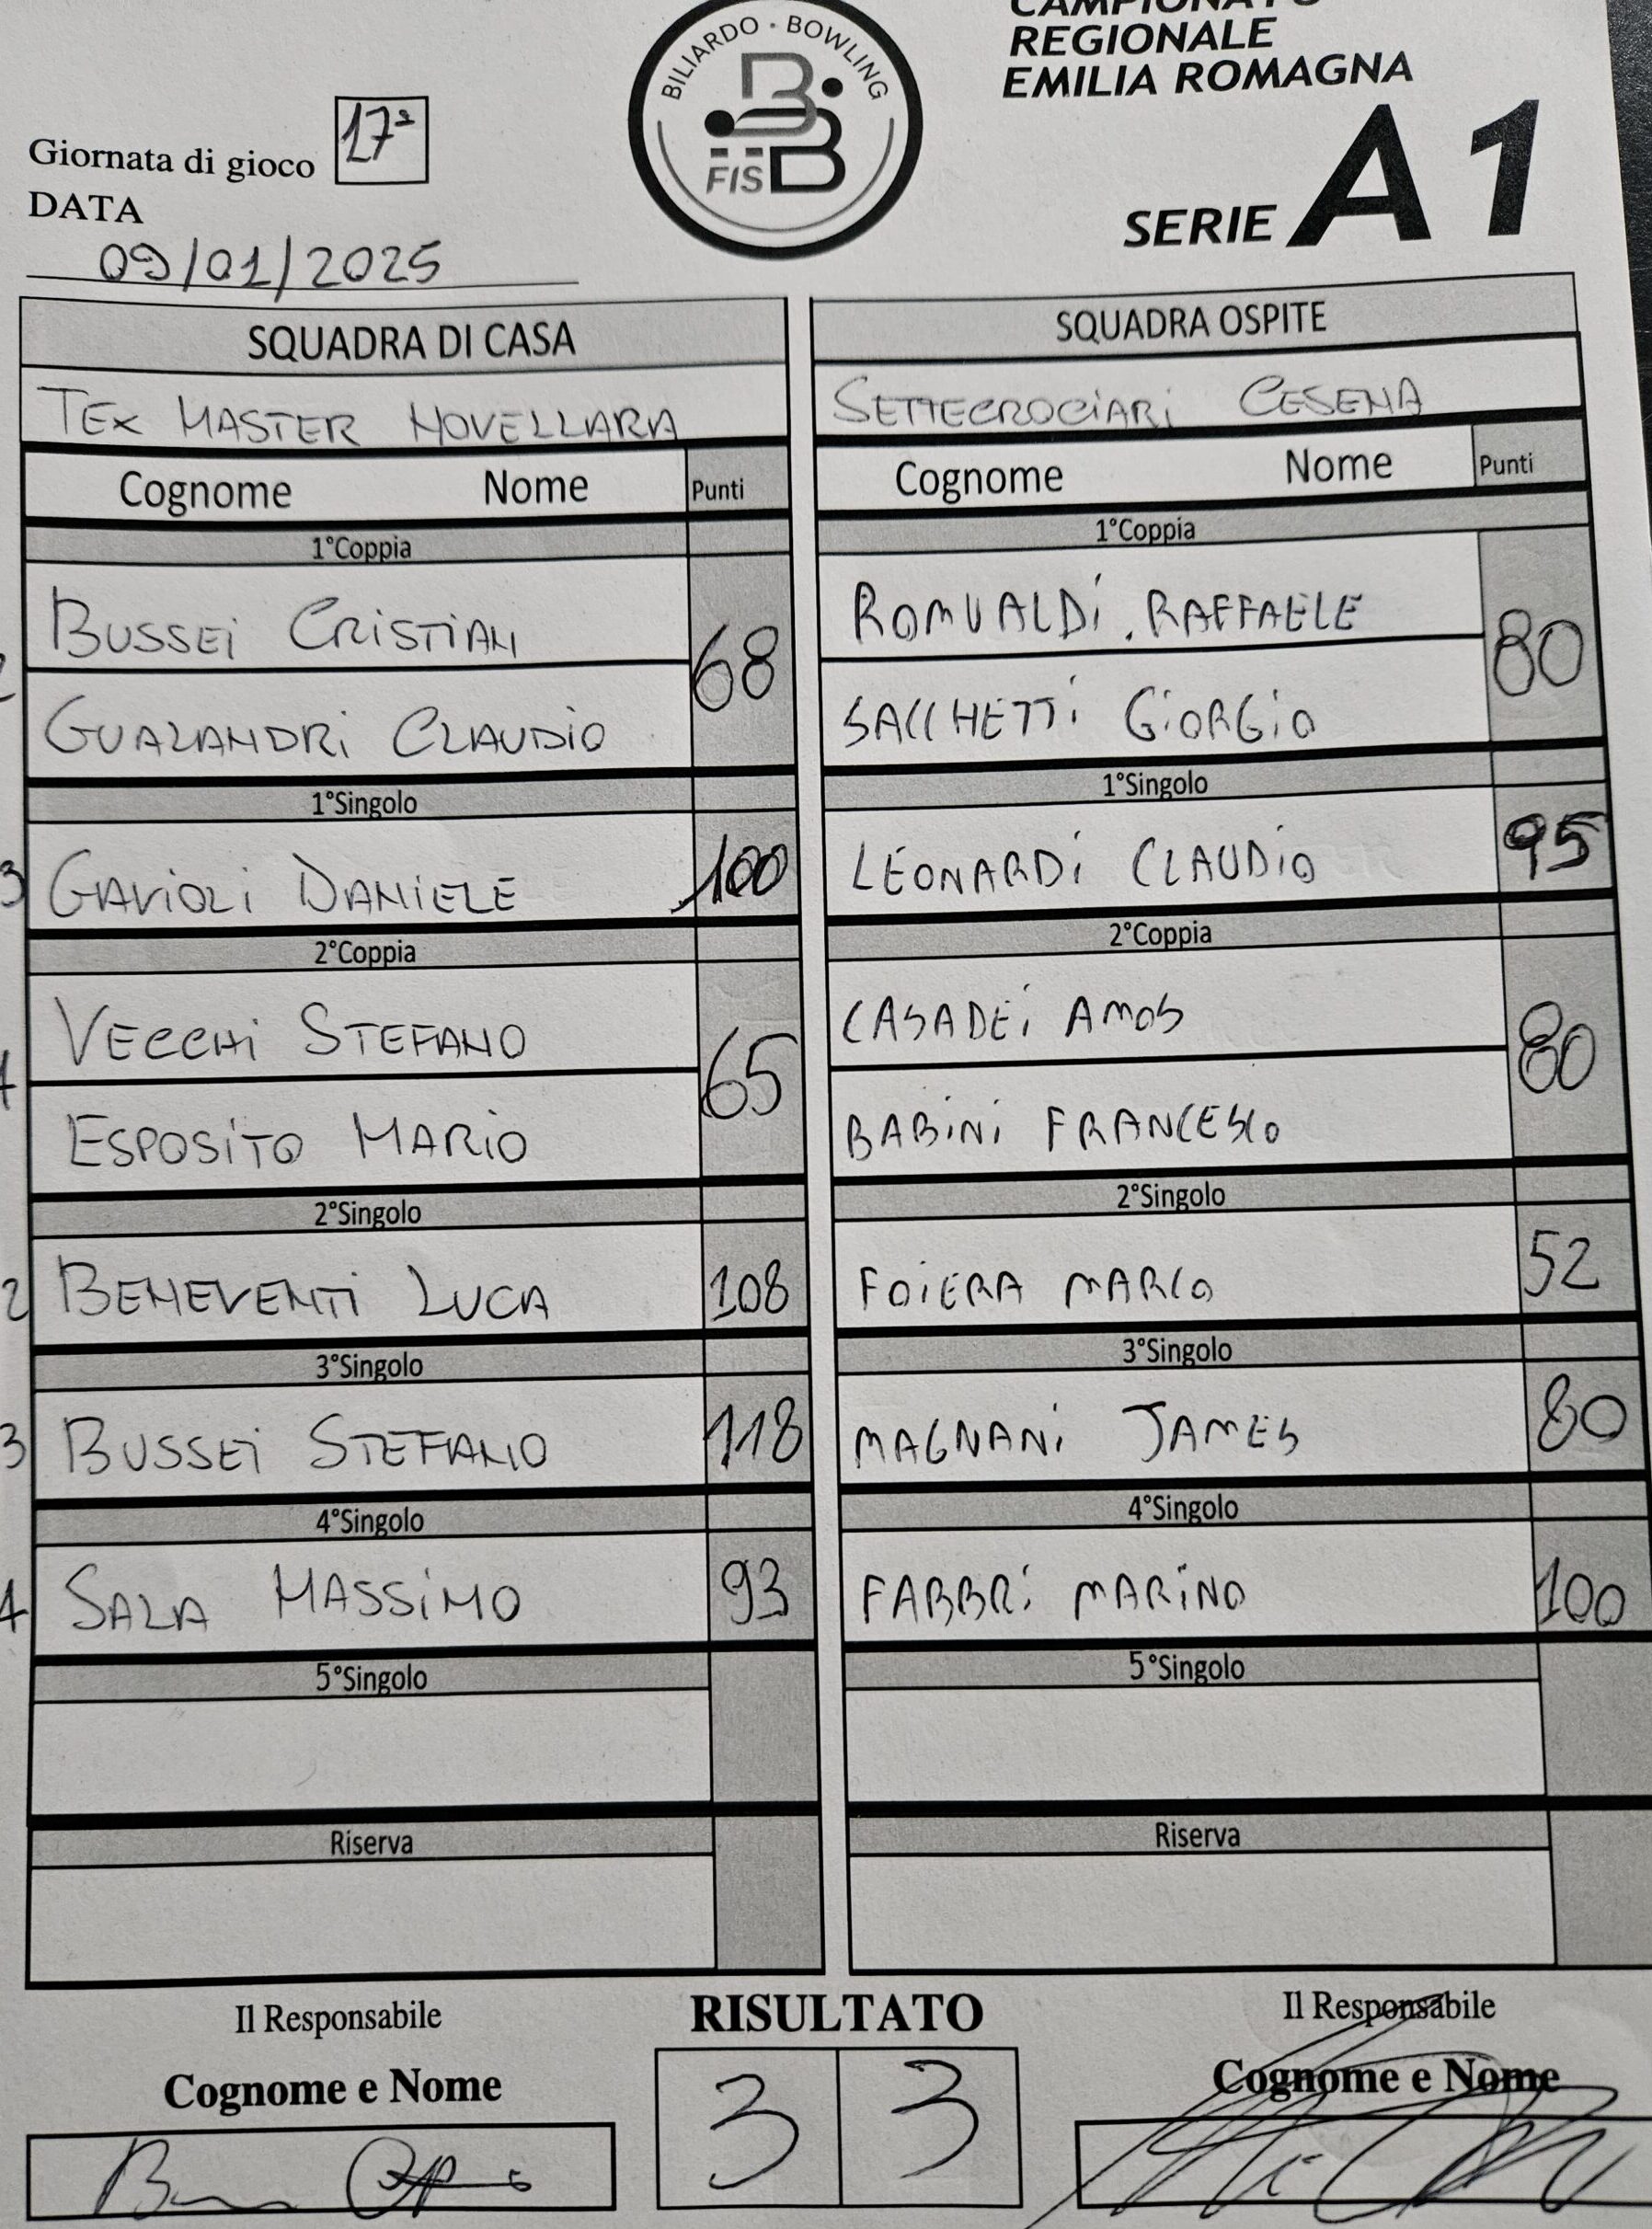 CAMPIONATO
REGIONALE
EMILIA ROMAGNA
SERIE A1
BILIARDO · BOWLING
FISBB
Giornata di gioco 17ª
DATA
09/01/2025
SQUADRA DI CASA
TEX MASTER NOVELLARA
Cognome Nome Punti
1°Coppia
BUSSEI CRISTIAN
68
GUALANDRI CLAUDIO
1°Singolo
3 GAVIOLI DANIELE 100
2°Coppia
VECCHI STEFANO
65
ESPOSITO MARIO
2°Singolo
2 BENEVENTI LUCA 108
3°Singolo
3 BUSSEI STEFANO 118
4°Singolo
1 SALA MASSIMO 93
5°Singolo
Riserva
SQUADRA OSPITE
SETTECROCIARI CESENA
Cognome Nome Punti
1°Coppia
ROMUALDI RAFFAELE
80
SACCHETTI GIORGIO
1°Singolo
LEONARDI CLAUDIO 95
2°Coppia
CASADEI AMOS
80
BABINI FRANCESCO
2°Singolo
FOIERA MARCO 52
3°Singolo
MAGNANI JAMES 80
4°Singolo
FABBRI MARINO 100
5°Singolo
Riserva
Il Responsabile
Cognome e Nome
RISULTATO
3 3
Il Responsabile
Cognome e Nome